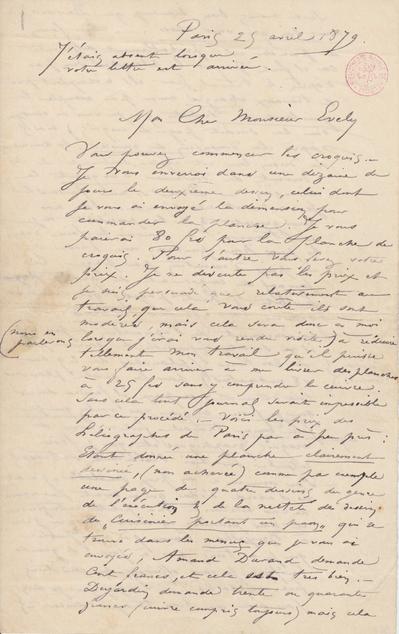 Paris 25 avril 1879.
J'étais absent lorsque
votre lettre est arrivée.
Mon Cher Monsieur Evely
Vous pouvez commencer les croquis.
Je vous enverrai dans une dizaine de
jours le deuxième dessin, celui dont
je vous ai envoyé la dimension pour
commander la planche. Je vous
paierai 80 frs pour la planche de
croquis. Pour l'autre vous ferez votre
prix. Je ne discute pas les prix et
je suis persuadé que relativement au
travail, que cela vous coûte ils sont
modérés, mais cela sera donc à moi
(nous en parlerons)
lorsque j'irai vous rendre visite, à réduire
tellement mon travail qu'il puisse
vous faire arriver à me livrer des planches
à 25 frs sans y comprendre le cuivre.
Sans cela tout journal serait impossible
par ce procédé. Voici les prix des
héliographes de Paris par à peu près :
Etant donnée une planche clairement
dessinée, (non achevée) comme par exemple
une page de quatre dessins du genre
de l'exécution & de la netteté du dessin
du Cuisinier portant un paon, qui se
trouve dans les menus que je vous ai
envoyés, Amand Durand demande
Cent francs, et cela très bien.
Dujardin demande trente ou quarante
francs (cuivre compris toujours) mais cela